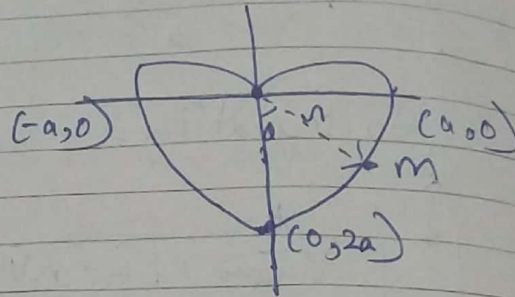 (-a,0)
r
(a,0)
θ
m
(0,2a)